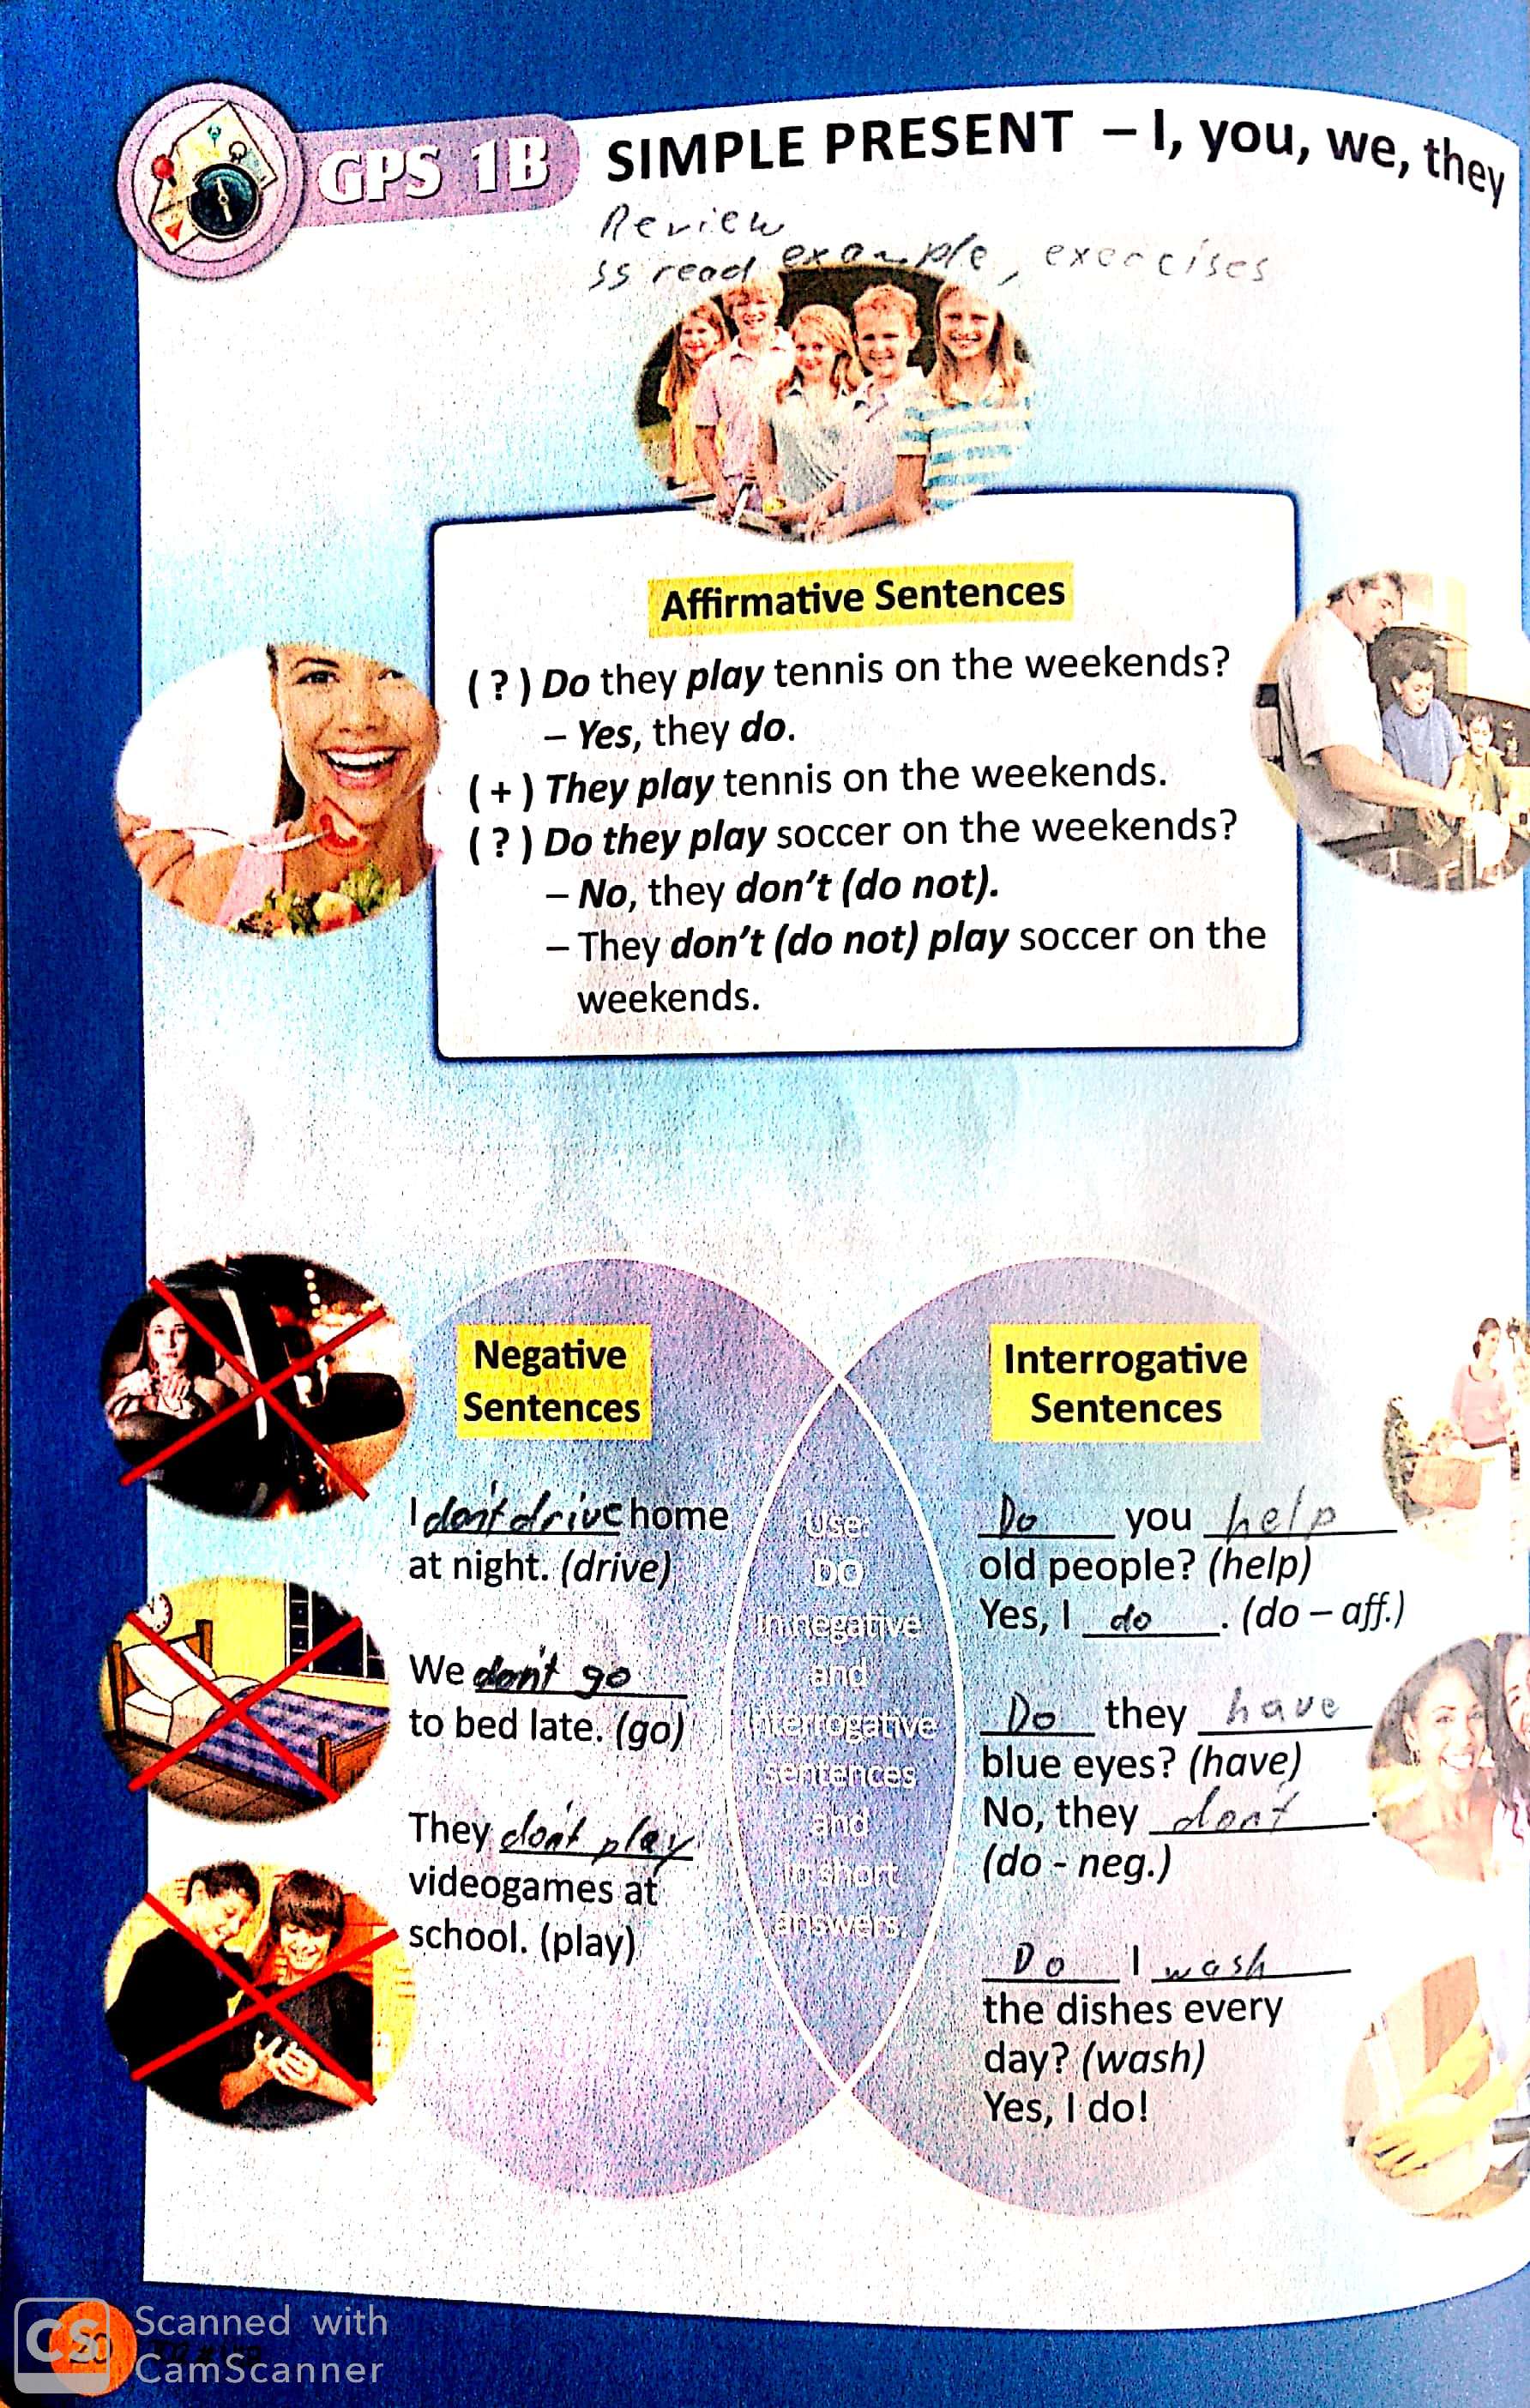 GPS 1B
SIMPLE PRESENT – I, you, we, they
Review
SS read example, exercises
Affirmative Sentences
( ? ) Do they play tennis on the weekends?
– Yes, they do.
( + ) They play tennis on the weekends.
( ? ) Do they play soccer on the weekends?
– No, they don't (do not).
– They don't (do not) play soccer on the
weekends.
Negative
Sentences
I don't drive home
at night. (drive)
We don't go
to bed late. (go)
They don't play
videogames at
school. (play)
Use:
DO
in negative
and
interrogative
sentences
and
in short
answers.
Interrogative
Sentences
Do you help
old people? (help)
Yes, I do. (do – aff.)
Do they have
blue eyes? (have)
No, they don't.
(do - neg.)
Do I wash
the dishes every
day? (wash)
Yes, I do!
20
CS
Scanned with
CamScanner